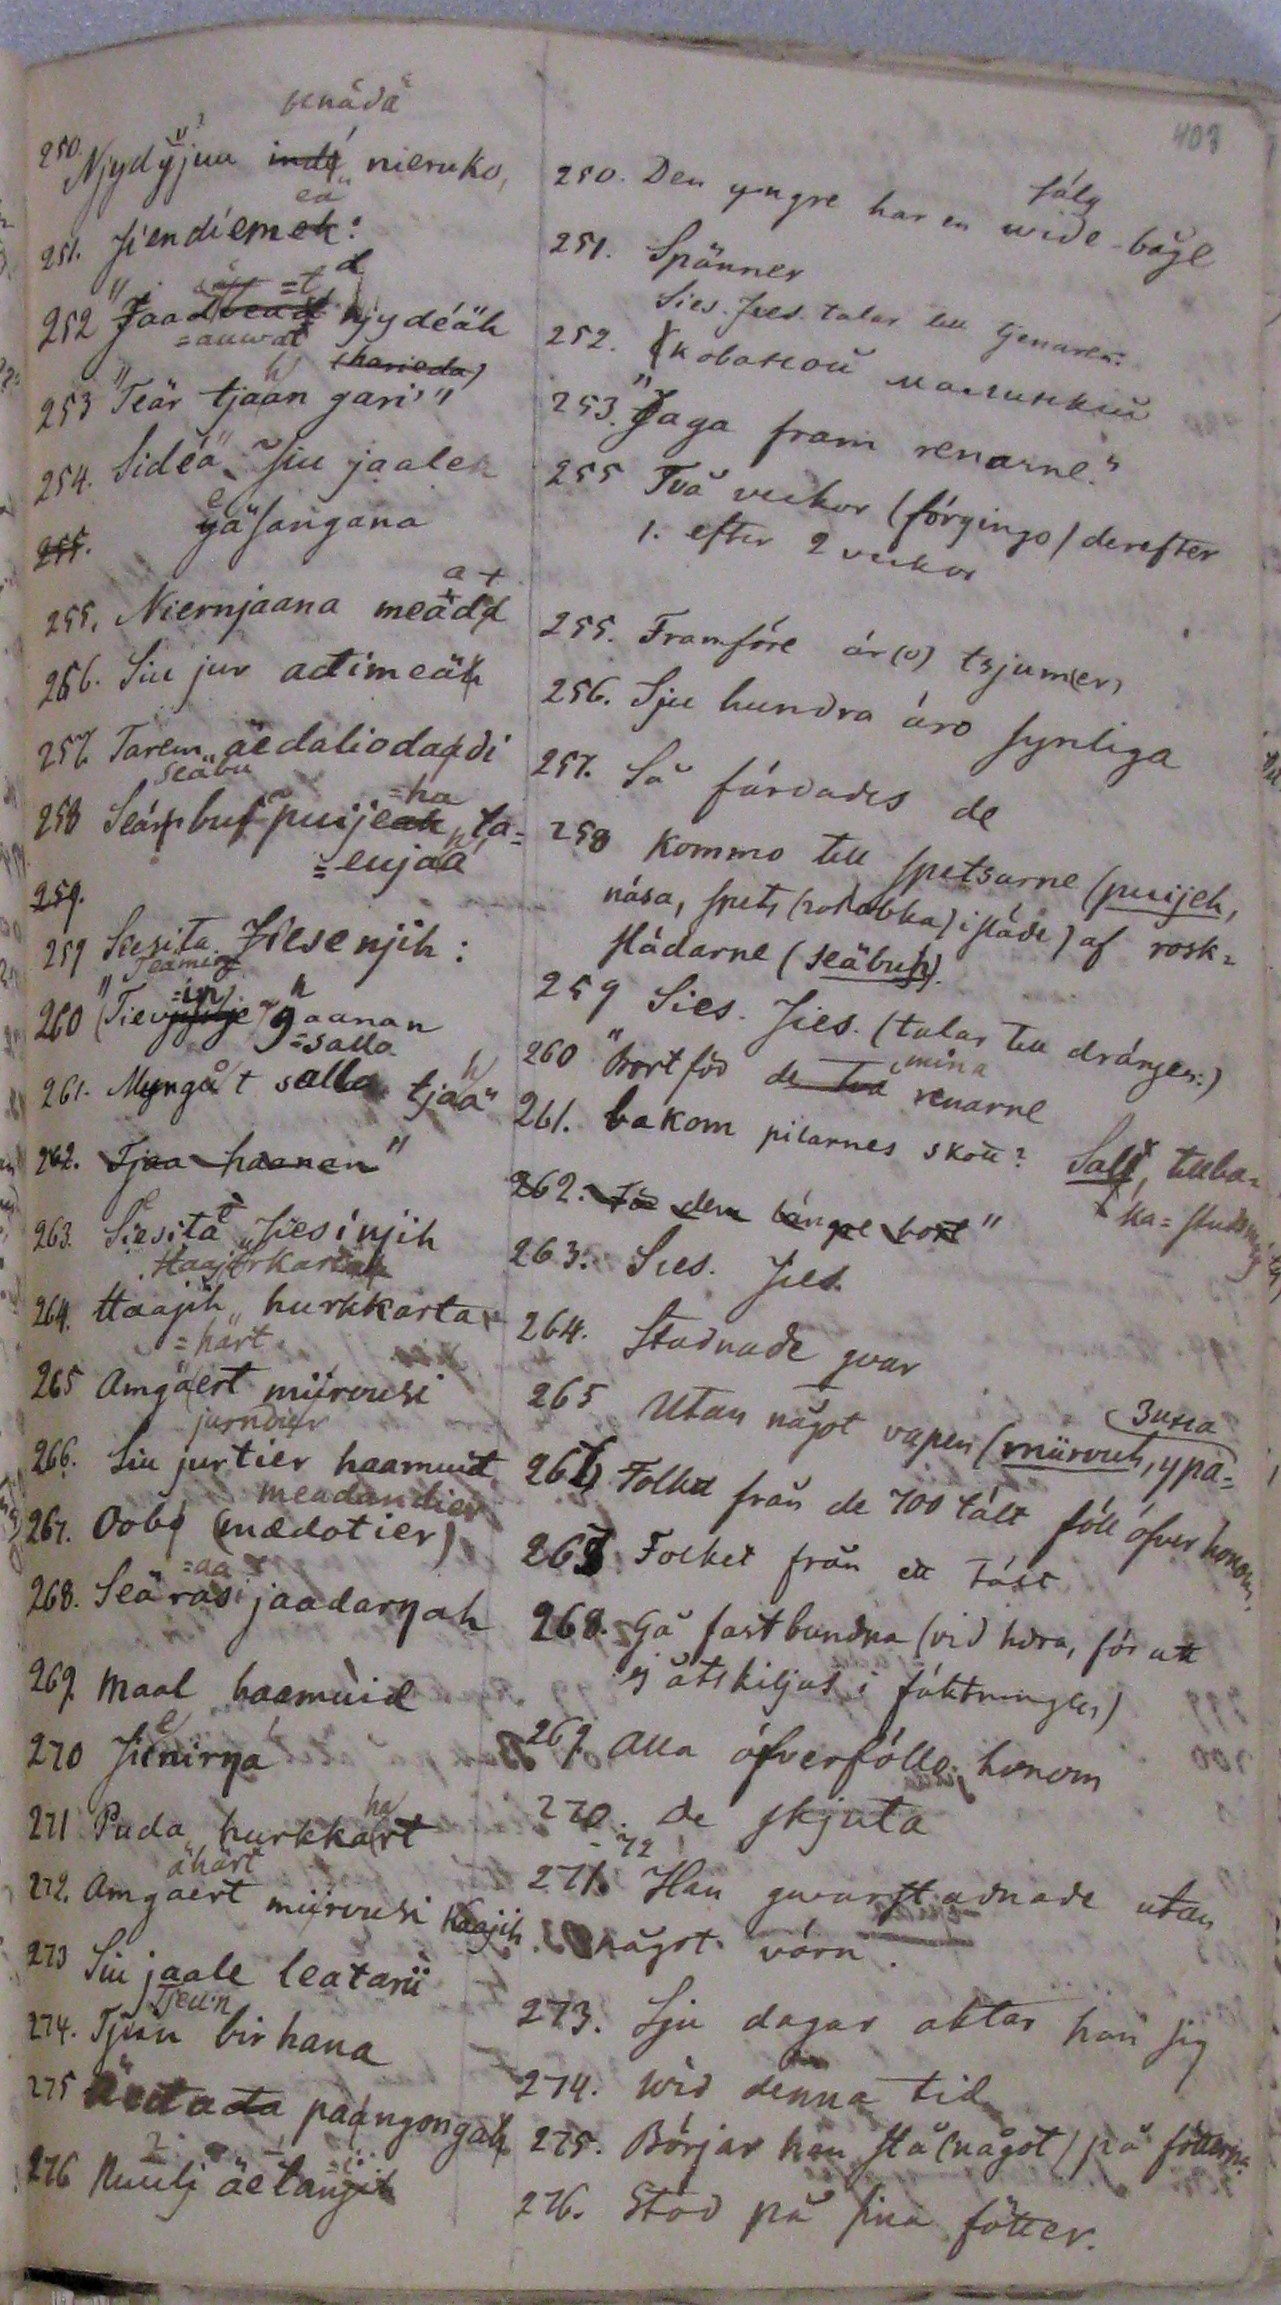 403
benädä
250. Njydÿjuu indé nieruko,
eä
251. Jiendiemek:
=t d
252 "Jaadbead njydéäh
=auwat
(harieda)
253 "Teär tjään gari"
254. Sidéä Siu jaaleh
255. gäsangana
a t
255. Niernjaana meädd
256. Siu jur adimeäh
257. Tarem äedaliodandi
seäbu
258 Seärpbuj puijeah, ta=
=ha
=eujaa
259.
259 Siesita Jiesenjih:
Teäming
260 (Tiev
=in
gaanan
=salla
261. Myngåt salla tjaä"
262. Tjea haanan"
263. Siesita Jiesinjih
Haajörkart
264. Haajih hurkkarta
=härt
265 Amgäert miirvusi
jurndier
266. Siu jurtier haamuid
meadandier
267. Oobj (mædotier)
=aa
268. Seärasi jaadaryah
269. Maal haamuid
270 Jienirya
ha
271 Puda hurkkart
ähärt
272. Amgaert miirvusi haajih
273 Siu jaale leatarii
Tjeun
274. Tjuu birhana
275 äedada paangongah
276 Nuulj äetangih
fälg
250. Den yngre har en wide-båge
251. Spänner
Sies. Jies. talar till tjenaren:
252.
253. "Jaga fram renarne."
255 Två veckor (förgingo) derefter
1. efter 2 veckor
255. Framföre är(o) tsjum(er)
256. Sju hundra äro synliga
257. Så färdades de
258 Kommo till spetsarne (puijeh,
näsa, spets (i släde) af rosk=
slädarne (seäbuh).
259 Sies. Jies. (talar till drängen:)
mina
260 "Bortför de två renarne
261. bakom pilarnes skott? Salt, tillba=
ka=studsning
262. För dem längre bort"
263. Sies. Jies.
264. Stadnade qvar
265 Utan något vapen (miirvuh,
266 Folket från de 700 tält föll öfver honom.
267 Folket från ett tält
268. Gå fastbundna (vid hvra, för att
ej åtskiljas i fäktningen)
269 Alla öfverföllo honom
270. De skjuta
-72
271. Han qvarstadnade utan
något värn.
273. Sju dagar aktar han sig
274. Wid denna tid
275. Börjar han stå (något) på fötterna.
276. Stod på sina fötter.